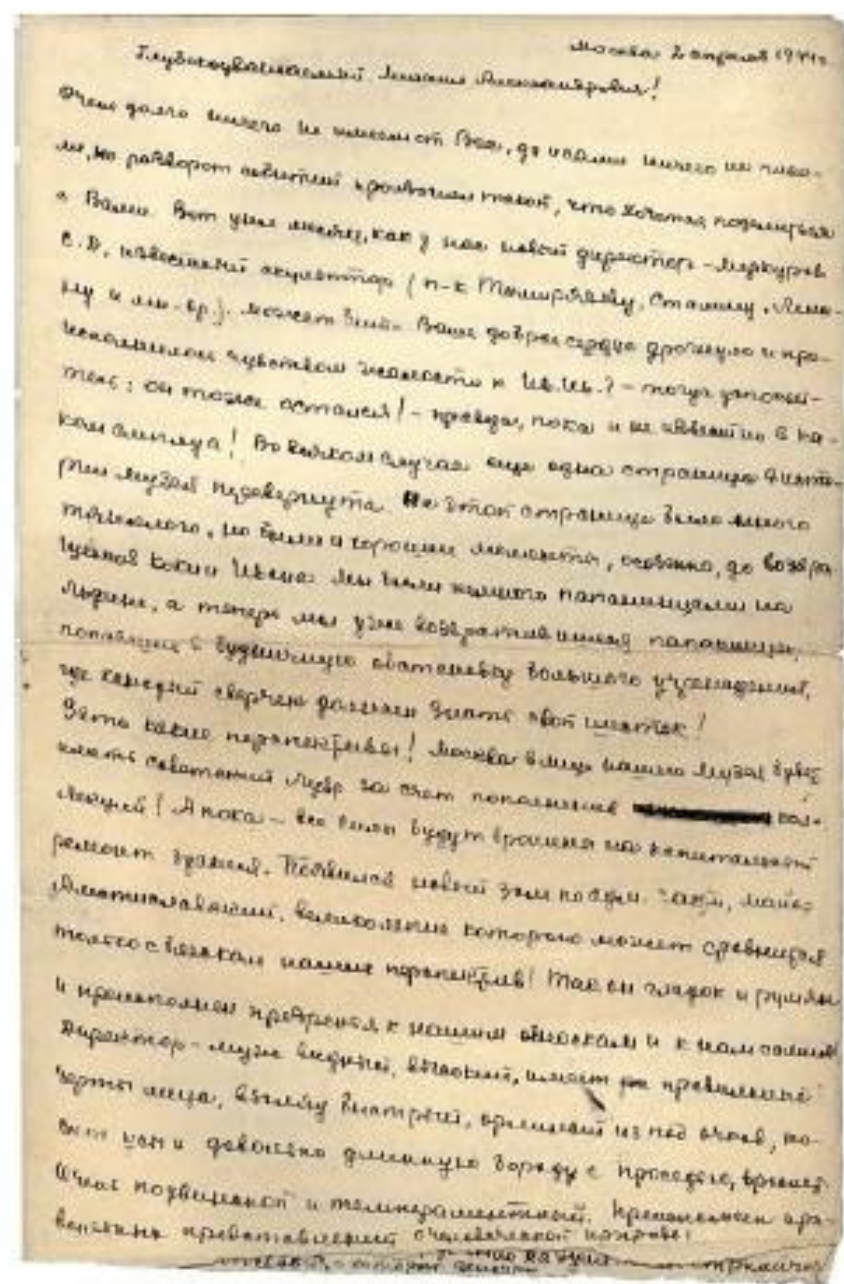 Москва 2 апреля 1944г.
Глубокоуважаемый Михаил Александрович!
Очень долго ничего не имели от Вас, да и сами ничего не писа-
ли, но разворот событий произошел такой, что хочется поделиться
с Вами. Вот уже месяц, как у нас новый директор - Меркуров
С.Д. известный скульптор (п-к Тимирязеву, Сталину, Лени-
ну и мн. др.). Может быть Ваше доброе сердце дрогнуло и пре-
исполнилось чувством жалости к Ив.Ив.? -
он тоже остался! - правда, пока и не известно в ка-
ком амплуа! Во всяком случае еще одна страница
музея перевернута. На этой странице было много
тяжелого, но были и хорошие моменты, особенно, до возвра-
щения мы были немного папанинцами на
льдине, а теперь мы уже возвратившиеся папанинцы,
попавшие в будничную обстановку большого учреждения,
где каждый сверчок должен знать свой шесток!
Зато какие перспективы! Москва в лице нашего музея будет
иметь советский Лувр за счет пополнения кол-
лекций! А пока - все силы будут брошены на капитальный
ремонт здания. Появился новый зам по
великолепие которого может сравниться
только с блеском наших перспектив! Так он гладок и румян
и преисполнен презрения к нашим обноскам и к нам самим!
Директор - муж видный, высокий, имеет правильные
черты лица, взгляд быстрый, орлиный из под очков, но-
сит усы и довольно длинную бороду с проседью,
Очень подвижной и темпераментный. Преисполнен
представлений о человеческой природе!